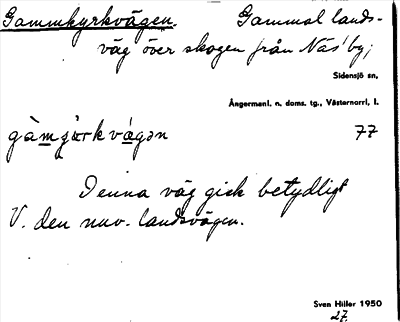 Gammkyrkvägen. Gammal lands-
väg över skogen från Näs' by;
Sidensjö sn,
Ångermanl. n. doms. tg., Västernorrl. l.
gàmjærkvágən 77
Denna väg gick betydligt
V. den nuv. landsvägen.
Sven Hiller 1950
27.